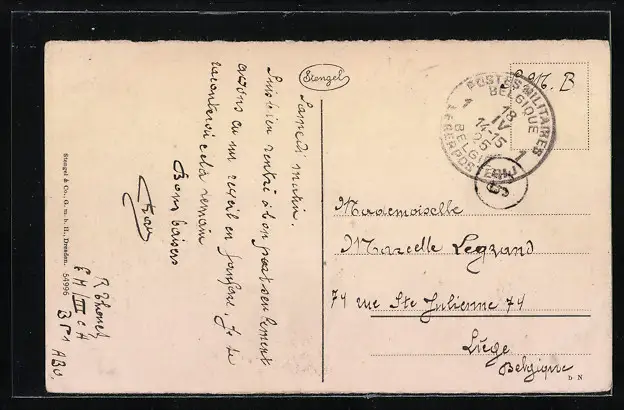 Stengel
Samedi matin.
Suis bien rentré à bon port seulement
avons eu un recueil en fanfare. Je te
raconterai cela demain
Bons baisers
R Thonet
E M / III e A
B P 1
ABO.
Stengel & Co., G. m. b. H., Dresden. 54996
S. M. B
POSTES MILITAIRES
BELGIQUE
1
18
IV
14-15
25
BELGIE
LEGERPOSTERIJ
1
Mademoiselle
Marcelle Legrand
74 rue Ste Julienne 74
Liège
Belgique
D N